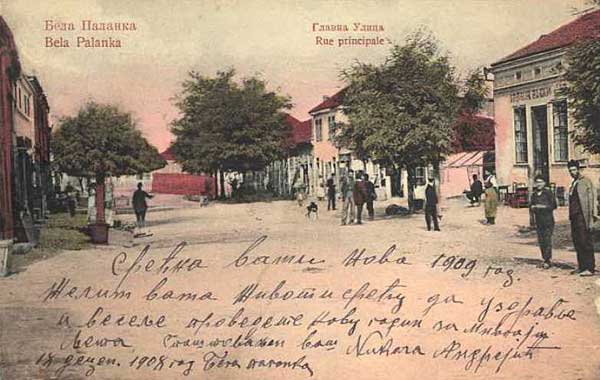 Бела Паланка
Bela Palanka
Главна Улица
Rue principale
Срећна вати Нова 1909 год.
Желит вата Животи срећу да у здравље
и весеље проведете нову годин за
Лета вати Никола Андрејић
18 децем. 1908 год Бела Паланка